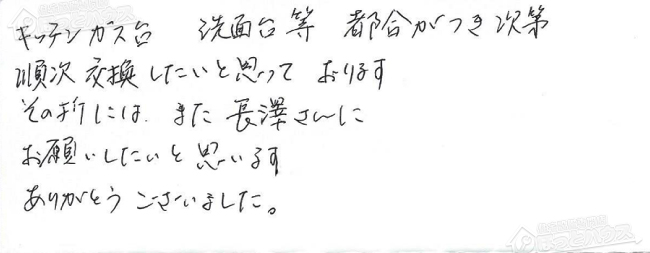 キッチン ガス台 洗面台等 都合がつき次第
順次 交換したいと思って おります
その折には また 長澤さんに
お願いしたいと 思います
ありがとう ございました。